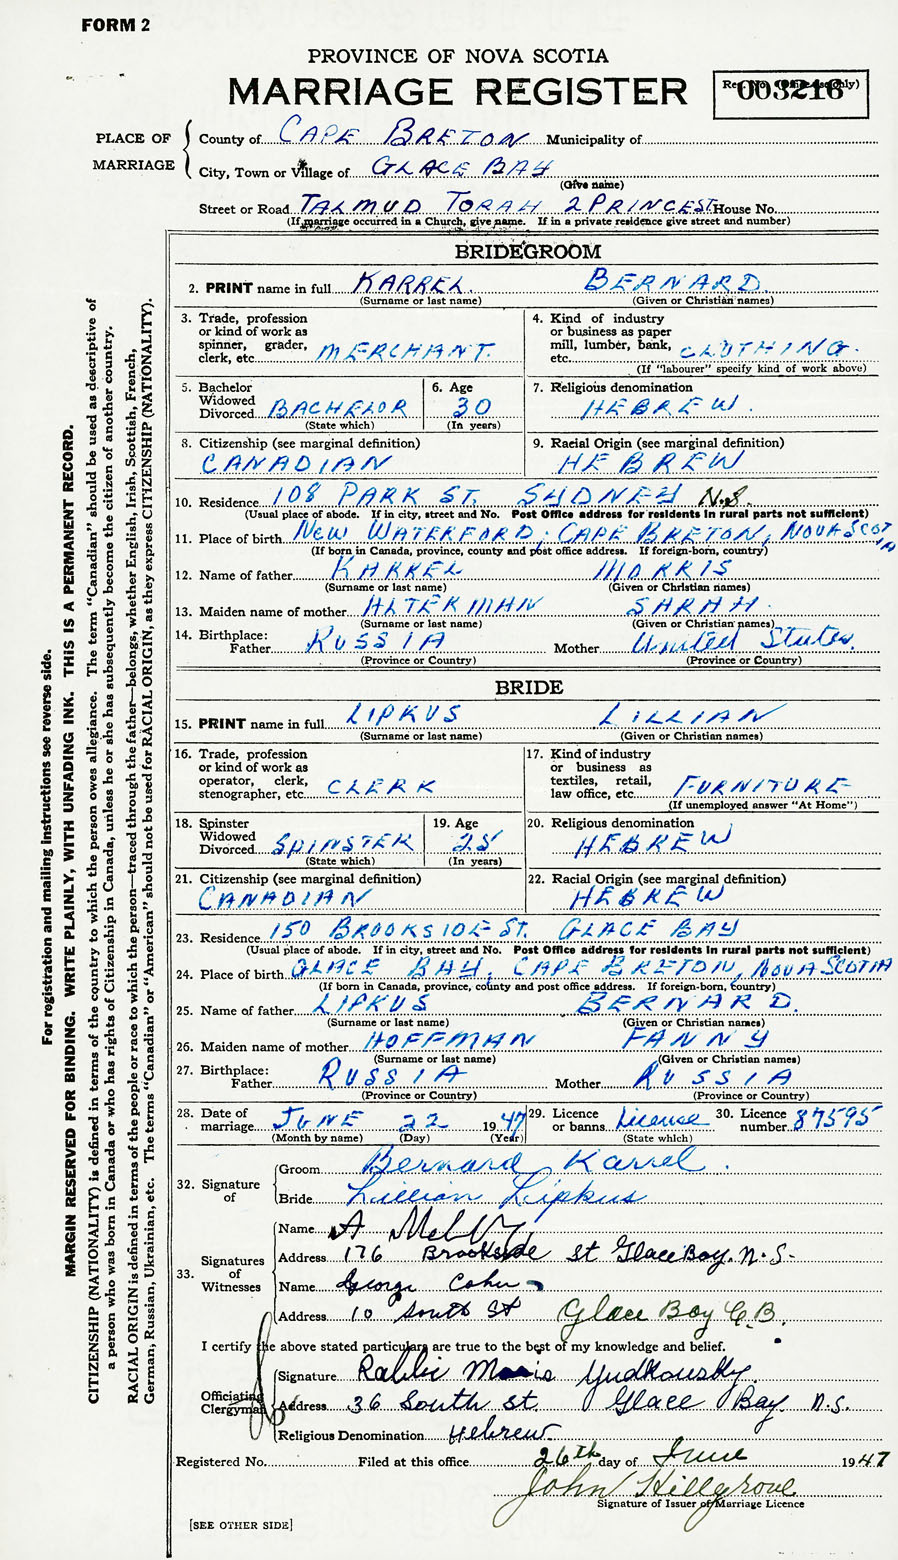 FORM 2
PROVINCE OF NOVA SCOTIA
MARRIAGE REGISTER
Reg. No. (Office use only)
003216
PLACE OF MARRIAGE
County of CAPE BRETON Municipality of
City, Town or Village of GLACE BAY
(Give name)
Street or Road TALMUD TORAH 2 PRINCE ST. House No.
(If marriage occurred in a Church, give name. If in a private residence give street and number)
BRIDEGROOM
2. PRINT name in full KARREL BERNARD
(Surname or last name) (Given or Christian names)
3. Trade, profession or kind of work as spinner, grader, clerk, etc. MERCHANT.
4. Kind of industry or business as paper mill, lumber, bank, etc. CLOTHING.
(If "labourer" specify kind of work above)
5. Bachelor Widowed Divorced BACHELOR
(State which)
6. Age 30
(In years)
7. Religious denomination HEBREW.
8. Citizenship (see marginal definition) CANADIAN
9. Racial Origin (see marginal definition) HEBREW
10. Residence 108 PARK ST. SYDNEY N.S.
(Usual place of abode. If in city, street and No. Post Office address for residents in rural parts not sufficient)
11. Place of birth NEW WATERFORD, CAPE BRETON, NOVA SCOTIA
(If born in Canada, province, county and post office address. If foreign-born, country)
12. Name of father KARREL MORRIS
(Surname or last name) (Given or Christian names)
13. Maiden name of mother ALTERMAN SARAH.
(Surname or last name) (Given or Christian names)
14. Birthplace: Father RUSSIA Mother United States.
(Province or Country) (Province or Country)
BRIDE
15. PRINT name in full LIPKUS LILLIAN
(Surname or last name) (Given or Christian names)
16. Trade, profession or kind of work as operator, clerk, stenographer, etc. CLERK
17. Kind of industry or business as textiles, retail, law office, etc. FURNITURE
(If unemployed answer "At Home")
18. Spinster Widowed Divorced SPINSTER
(State which)
19. Age 25
(In years)
20. Religious denomination HEBREW
21. Citizenship (see marginal definition) CANADIAN
22. Racial Origin (see marginal definition) HEBREW
23. Residence 150 BROOKSIDE ST. GLACE BAY
(Usual place of abode. If in city, street and No. Post Office address for residents in rural parts not sufficient)
24. Place of birth GLACE BAY, CAPE BRETON, NOVA SCOTIA
(If born in Canada, province, county and post office address. If foreign-born, country)
25. Name of father LIPKUS BERNARD.
(Surname or last name) (Given or Christian names)
26. Maiden name of mother HOFFMAN FANNY
(Surname or last name) (Given or Christian names)
27. Birthplace: Father RUSSIA Mother RUSSIA
(Province or Country) (Province or Country)
28. Date of marriage JUNE 22 1947
(Month by name) (Day) (Year)
29. Licence or banns License
(State which)
30. Licence number 87595
32. Signature of
Groom Bernard Karrel.
Bride Lillian Lipkus
33. Signatures of Witnesses
Name A
Address 176 Brookside St Glace Bay. N.S.
Name George Cohn
Address 10 South St Glace Bay C.B.
I certify the above stated particulars are true to the best of my knowledge and belief.
Officiating Clergyman
Signature Rabbi Morris Yudkowsky.
Address 36 South St. Glace Bay N.S.
Religious Denomination Hebrew
Registered No. Filed at this office 26th day of June 1947
John Hillgrove
Signature of Issuer of Marriage Licence
[SEE OTHER SIDE]
For registration and mailing instructions see reverse side.
MARGIN RESERVED FOR BINDING. WRITE PLAINLY, WITH UNFADING INK. THIS IS A PERMANENT RECORD.
CITIZENSHIP (NATIONALITY) is defined in terms of the country to which the person owes allegiance. The term "Canadian" should be used as descriptive of
a person who was born in Canada or who has rights of Citizenship in Canada, unless he or she has subsequently become the citizen of another country.
RACIAL ORIGIN is defined in terms of the people or race to which the person—traced through the father—belongs, whether English, Irish, Scottish, French,
German, Russian, Ukrainian, etc. The terms "Canadian" or "American" should not be used for RACIAL ORIGIN, as they express CITIZENSHIP (NATIONALITY).